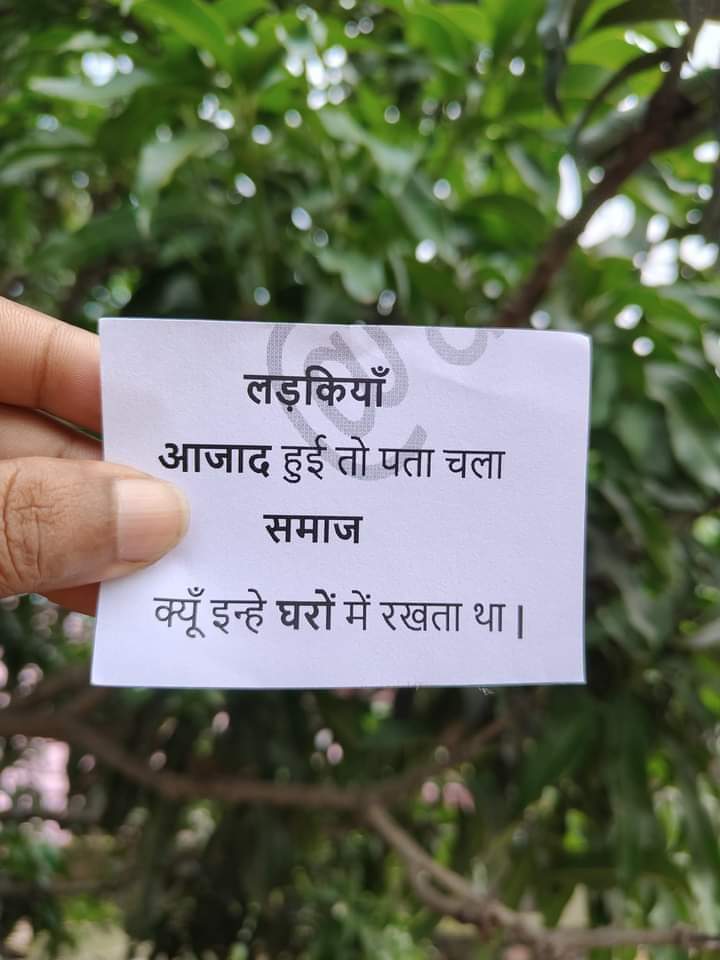 लड़कियाँ
आजाद हुई तो पता चला
समाज
क्यूँ इन्हे घरों में रखता था |